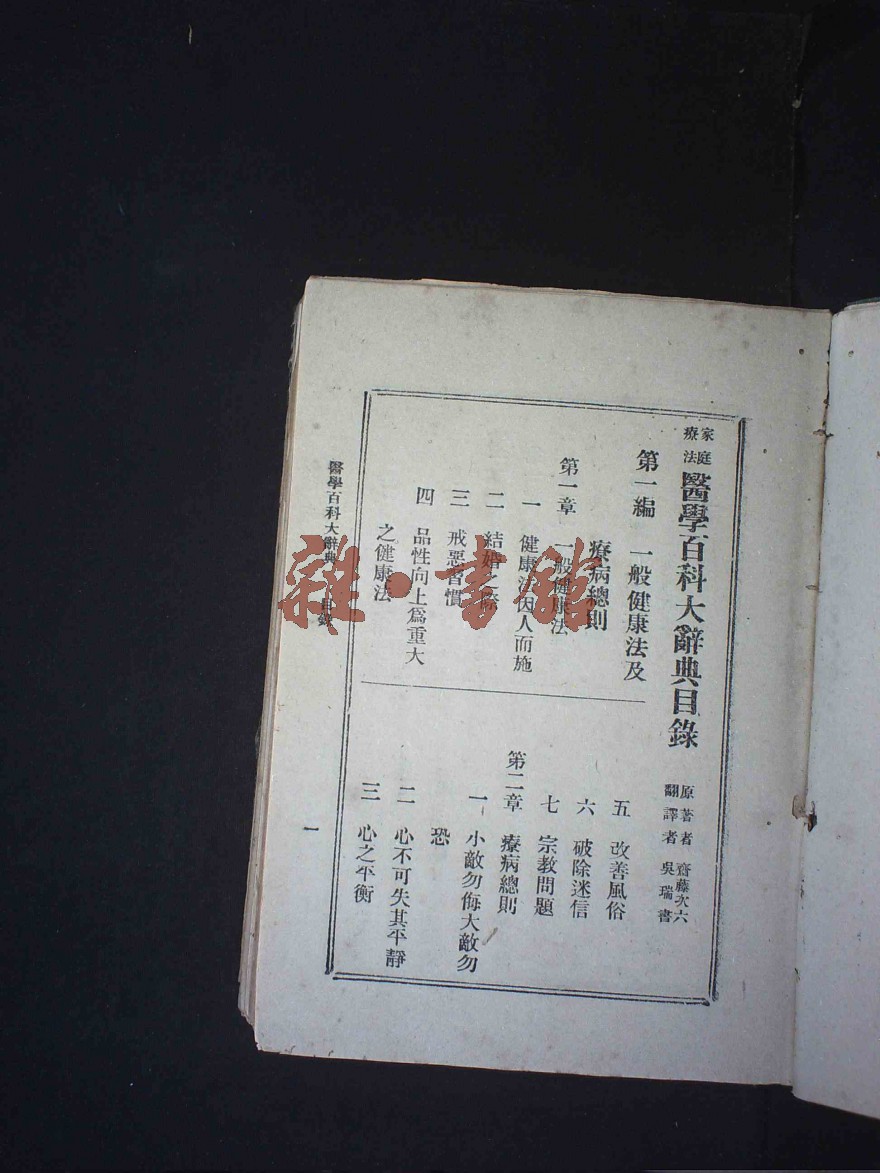 家庭療法 醫學百科大辭典目錄
原著者 齋藤次六
翻譯者 吳瑞書
第一編 一般健康法及
療病總則
第一章 一般健康法
一 健康法因人而施
二 結婚之際
三 戒惡習慣
四 品性向上爲重大
之健康法
五 改善風俗
六 破除迷信
七 宗教問題
第二章 療病總則
一 小敵勿侮大敵勿
恐
二 心不可失其平靜
三 心之平衡
醫學百科大辭典 目錄
一
雜·書館